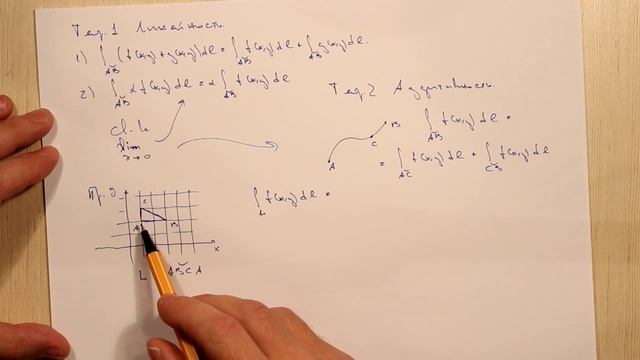 Теор.1 Линейность.
1) ∫_{AB} (f(x,y)+g(x,y))dl = ∫_{AB} f(x,y)dl + ∫_{AB} g(x,y)dl.
2) ∫_{AB} α f(x,y)dl = α ∫_{AB} f(x,y)dl
Теор.2 Аддитивность.
lim
A C B
∫_{AB} f(x,y)dl =
= ∫_{AC} f(x,y)dl + ∫_{CB} f(x,y)dl
Пр. 3
∫_L f(x,y)dl =
C
A B
x
L ABCA